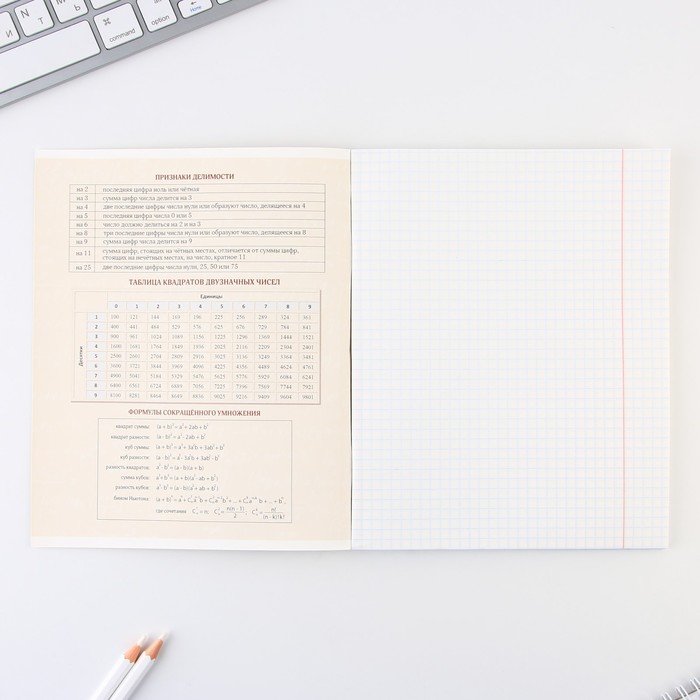 И
N
Т
М
Ь
⌘
command
alt
option
Home
ПРИЗНАКИ ДЕЛИМОСТИ
на 2 последняя цифра ноль или чётная
на 3 сумма цифр числа делится на 3
на 4 две последние цифры числа нули или образуют число, делящееся на 4
на 5 последняя цифра числа 0 или 5
на 6 число должно делиться на 2 и на 3
на 8 три последние цифры числа нули или образуют число, делящееся на 8
на 9 сумма цифр числа делится на 9
на 11 сумма цифр, стоящих на чётных местах, отличается от суммы цифр,
стоящих на нечётных местах, на число, кратное 11
на 25 две последние цифры числа нули, 25, 50 или 75
ТАБЛИЦА КВАДРАТОВ ДВУЗНАЧНЫХ ЧИСЕЛ
Единицы
0 1 2 3 4 5 6 7 8 9
Десятки
1 100 121 144 169 196 225 256 289 324 361
2 400 441 484 529 576 625 676 729 784 841
3 900 961 1024 1089 1156 1225 1296 1369 1444 1521
4 1600 1681 1764 1849 1936 2025 2116 2209 2304 2401
5 2500 2601 2704 2809 2916 3025 3136 3249 3364 3481
6 3600 3721 3844 3969 4096 4225 4356 4489 4624 4761
7 4900 5041 5184 5329 5476 5625 5776 5929 6084 6241
8 6400 6561 6724 6889 7056 7225 7396 7569 7744 7921
9 8100 8281 8464 8649 8836 9025 9216 9409 9604 9801
ФОРМУЛЫ СОКРАЩЁННОГО УМНОЖЕНИЯ
квадрат суммы: (a + b)² = a² + 2ab + b²
квадрат разности: (a - b)² = a² - 2ab + b²
куб суммы: (a + b)³ = a³ + 3a²b + 3ab² + b³
куб разности: (a - b)³ = a³ - 3a²b + 3ab² - b³
разность квадратов: a² - b² = (a - b)(a + b)
сумма кубов: a³ + b³ = (a + b)(a² - ab + b²)
разность кубов: a³ - b³ = (a - b)(a² + ab + b²)
Бином Ньютона:
где сочетания: